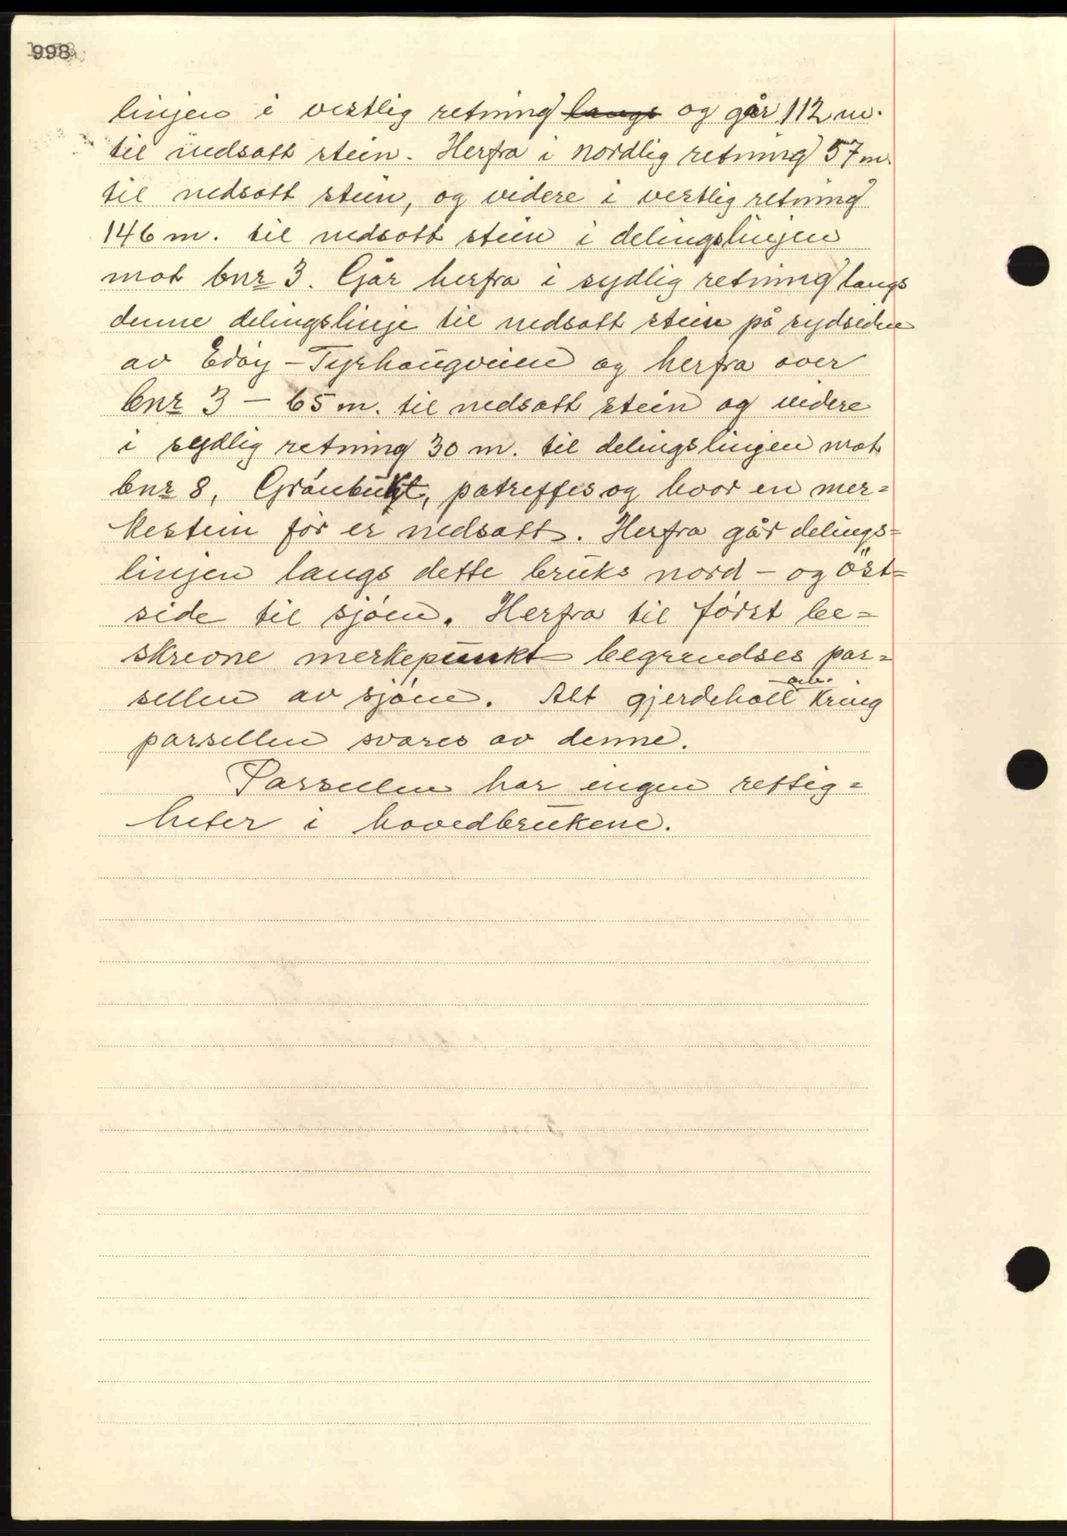 998
linjen i vestlig retning langs og går 112 m.
til nedsatt stein. Herfra i nordlig retning 57 m.
til nedsatt stein, og videre i vestlig retning
146 m. til nedsatt stein i delingslinjen
mot bnr 3. Går herfra i sydlig retning langs
denne delingslinje til nedsatt stein på sydsiden
av Edøy - Tyrhaugveien og herfra over
bnr 3 - 65 m. til nedsatt stein og videre
i sydlig retning 30 m. til delingslinjen mot
bnr 8, Grønbukt, patreffes og hvor en mer=
kestein før er nedsatt. Herfra går delings=
linjen langs dette bruks nord - og öst=
side til sjøen. Herfra til først be=
skrevne merkepunkt begrendses par=
sellen av sjøen. Alt gjerdehold om=
kring
parsellen svares av denne.
Parsellen har ingen rettig=
heter i hovedbrukene.